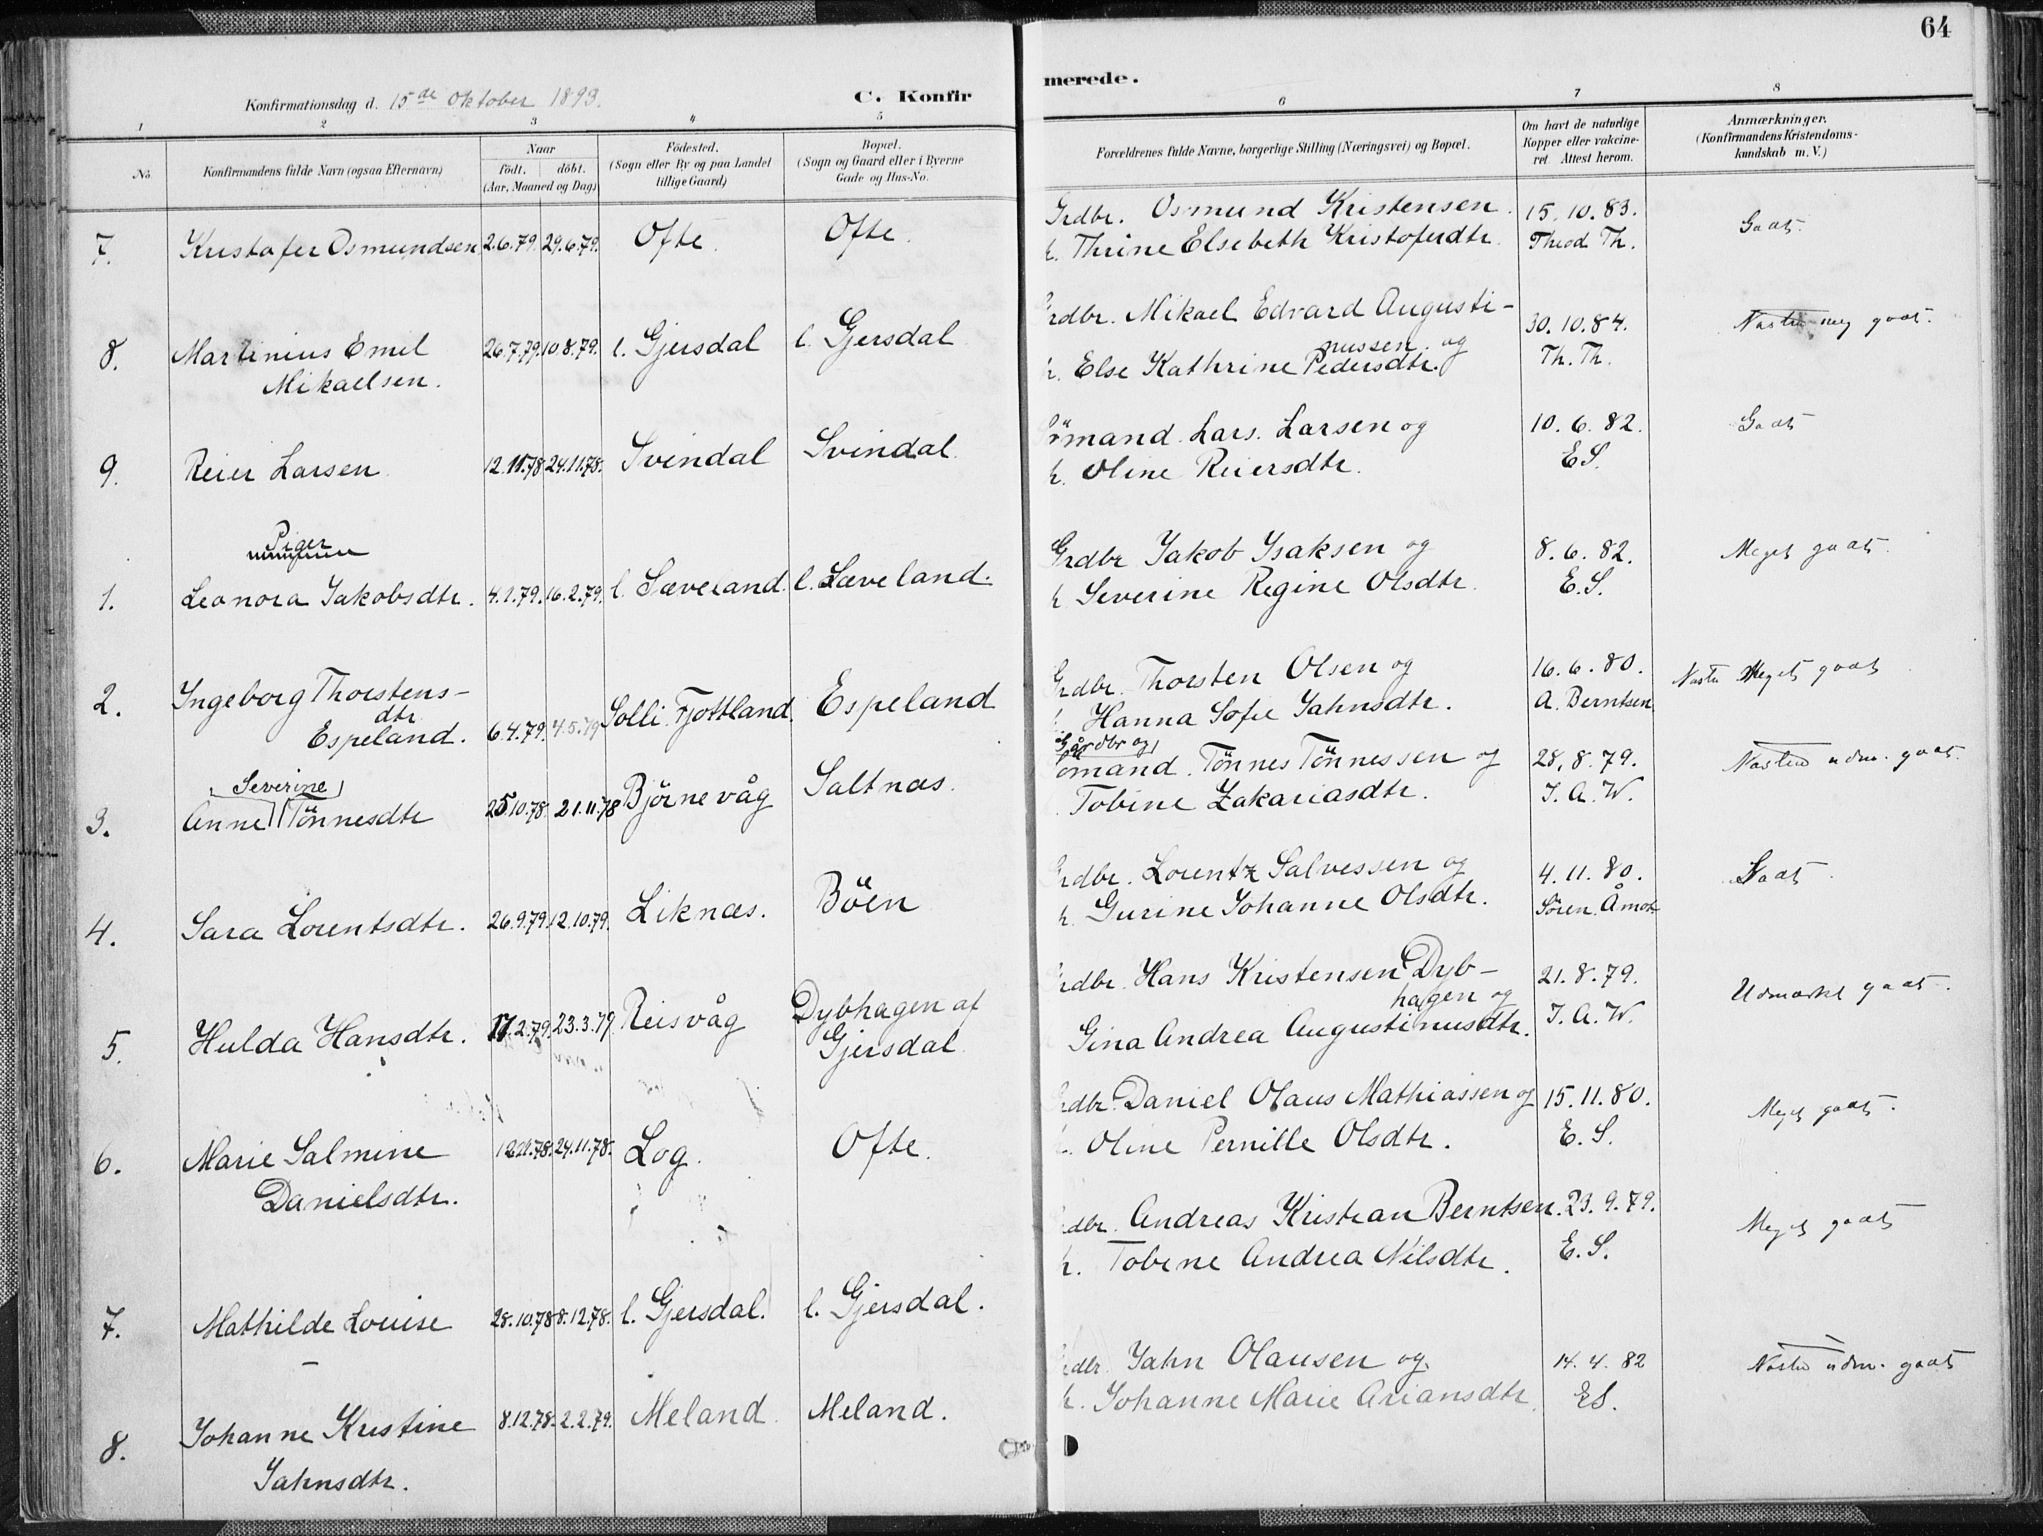 64
Konfirmationsdag d. 15de Oktober 1893.
C. Konfir
merede.
1 2 3 4 5 6 7 8
No
Konfirmandens fulde Navn (ogsaa Efternavn)
Naar
født. døbt.
(Aar, Maaned og Dag)
Fødested.
(Sogn eller By og paa Landet
lillige Gaard)
Bopæl.
(Sogn og Gaard eller i Byerne
Gade og Hus-No.
Forældrenes fulde Navne, borgerlige Stilling (Næringsvei) og Bopæl.
Om havt de naturlige
Kopper eller vakcine-
ret. Attest herom.
Anmærkninger.
(Konfirmandens Kristendoms-
kundskab m. V.)
7. Kristofer Osmundsen 2.6.79. 29.6.79. Ofte. Ofte.
Grdbr. Osmund Kristensen 15.10.83. Godt.
h. Thrine Elsebeth Kristoferdtr. Theod Th.
8. Martinius Emil 26.7.79. 10.8.79. l. Gjersdal l. Gjersdal
Mikaelsen.
rdbr. Mikael Edvard Augusti- 30.10.84. Næsten meg godt.
nussen og
h. Else Kathrine Pedersdtr. Th. Th.
9. Reier Larsen 12.11.78 24.11.78. Svindal Svindal.
ömand. Lars. Larsen og 10.6.82. Godt
h. Oline Reiersdtr. E.S.
Piger
1. Leonora Jakobsdtr. 4.1.79. 16.2.79. l. Sæveland. l. Sæveland.
Grdbr Jakob Isaksen og 8.6.82. Meget godt.
h. Severine Regine Olsdtr. E.S.
2. Ingeborg Thorstens-
dtr
Espeland. 6.4.79. 4.5.79 Solli Fjottland. Espeland
Grdbr. Thorsten Olsen og 16.6.80. Næsten Meget godt
Hanna Sofie Jahnsdtr. A. Berntsen
Severine
3. Anne Tönnesdtr 25.10.78. 21.11.78 Bjørnevåg Saltnæs.
Gårdbr og
ömand. Tönnes Tönnessen og 28.8.79. Næsten udm. godt.
Tobine Zakariasdtr. J.A.W.
4. Sara Lorentsdtr. 26.9.79. 12.10.79. Liknæs. Böen
rdbr. Lorentz Salvessen og 4.11.80. Godt
h. Gurine Johanne Olsdtr. Sören Åmot
5. Hulda Hansdtr. 17.2.79. 23.3.79. Reisvåg Dybhagen af
Gjersdal
rdbr. Hans Kristensen Dyb- 21.8.79. Udmærket godt.
hagen og
Gina Andrea Augustinusdtr. J.A.W.
6. Marie Salmine 24.11.78. Log. Ofte.
Danielsdtr.
rdbr. Daniel Olaus Mathiassen og 15.11.80. Meget godt.
Oline Pernille Olsdtr. E.S.
7. Mathilde Louise 28.10.78 8.12.78. l. Gjersdal. l. Gjersdal.
rdbr. Andreas Kristian Berntsen. 23.9.79. Meget godt
h. Tobine Andrea Nilsdtr. E.S.
8. Johanne Kristine 8.12.78. 2.2.79. Meland. Meland.
Jahnsdtr.
rdbr. Jahn Olausen og 14.4.82 Næsten udm. godt
h. Johanne Marie Ariansdtr. E.S.